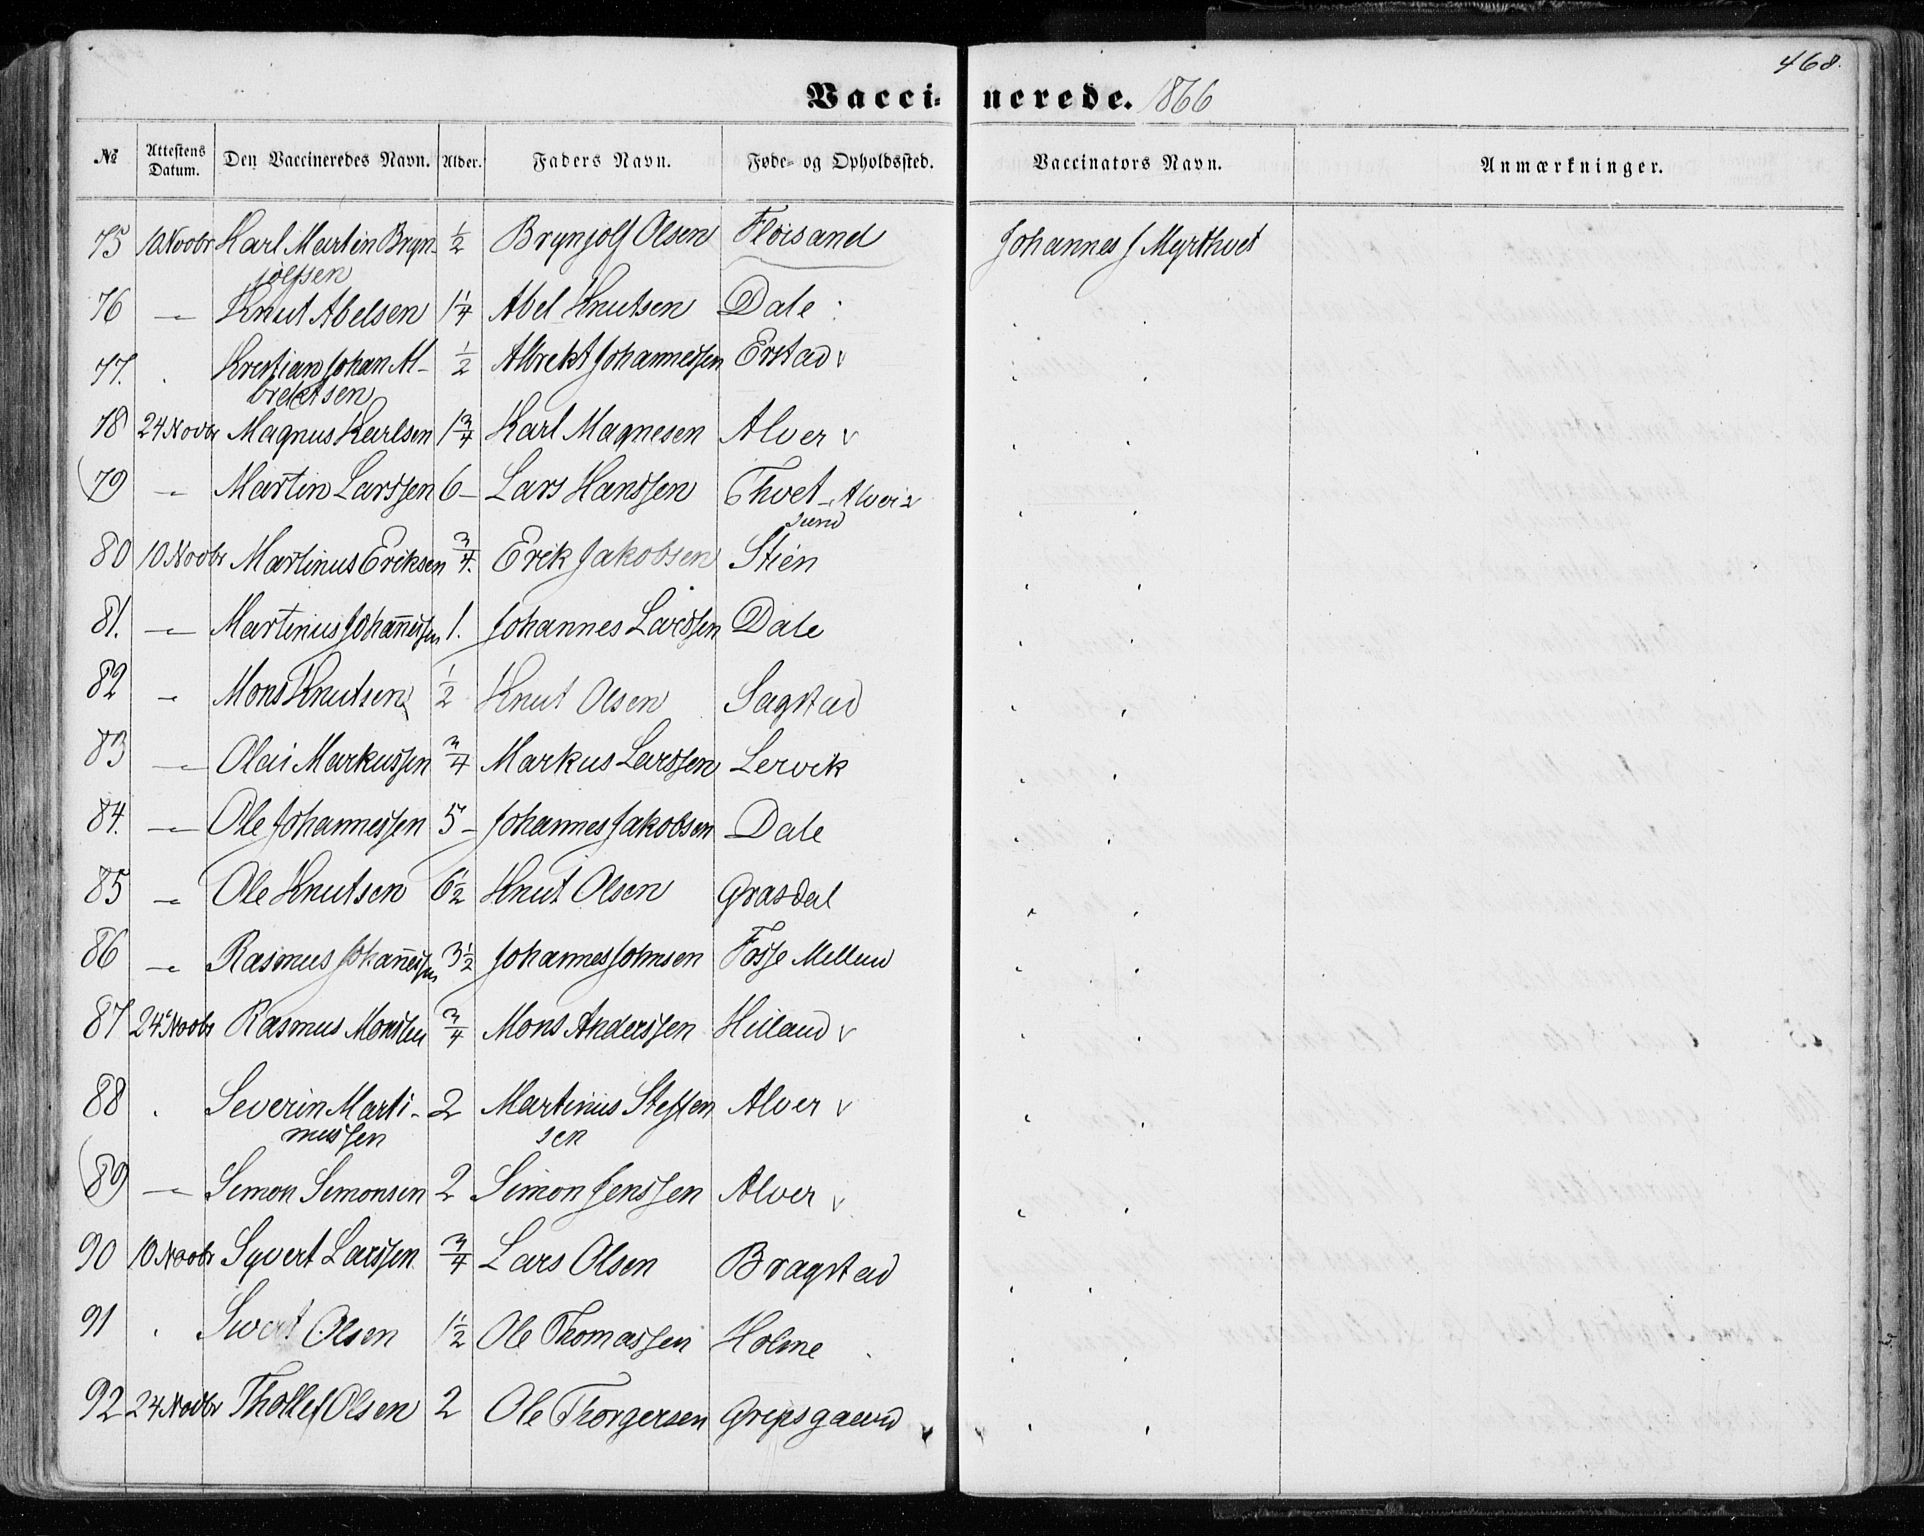 468.
Vacci- nerede. 1866
№ Attestens Datum. Den Vaccineredes Navn. Alder. Faders Navn. Føde- og Opholdssted. Vaccinators Navn. Anmærkninger.
75 10 Novbr Karl Martin Bryn- ½ Brynjolf Olsen Floisand Johannes J Myrthvet
jolfsen
76 — Knut Abelsen 1¼ Abel Knutsen Dale
77. Kristian Johan Al- ½ Albrekt Johannessen Erstad v
brektsen
78 24 Novbr Magnus Karlsen 1¾ Karl Magnesen Alver v
79 — Martin Larssen 6 — Lars Hanssen Thvet - Alver-
sund
80 10 Novbr Martinus Eriksen ¾. Erik Jakobsen Stien
81. — Martinus Johan̅essen 1. Johannes Larssen Dale
82 — Mons Knutsen ½ Knut Olsen Sagstad
83 — Olai Markussen ¾ Markus Larssen Lervik
84. — Ole Johannessen 5 — Johannes Jakobsen Dale
85 — Ole Knutsen 6½ Knut Olsen Grasdal
86 — Rasmus Johan̅essen 3½ Johannes Johnsen Fosse Mellem
87 24 Novbr Rasmus Monssen ¾ Mons Anderssen Hilland v
88 . Severin Marti- 2 Martinus Steffen Alver v
nussen sen
89 — Simon Simonsen 2 Simon Jenssen Alver v
90 10 Novbr Syvert Larssen ¾ Lars Olsen Bragstad
91 . Sivert Olsen 1½ Ole Thomassen Holme
92 24 Novbr Thollef Olsen 2 Ole Thorgersen Gripsgaard